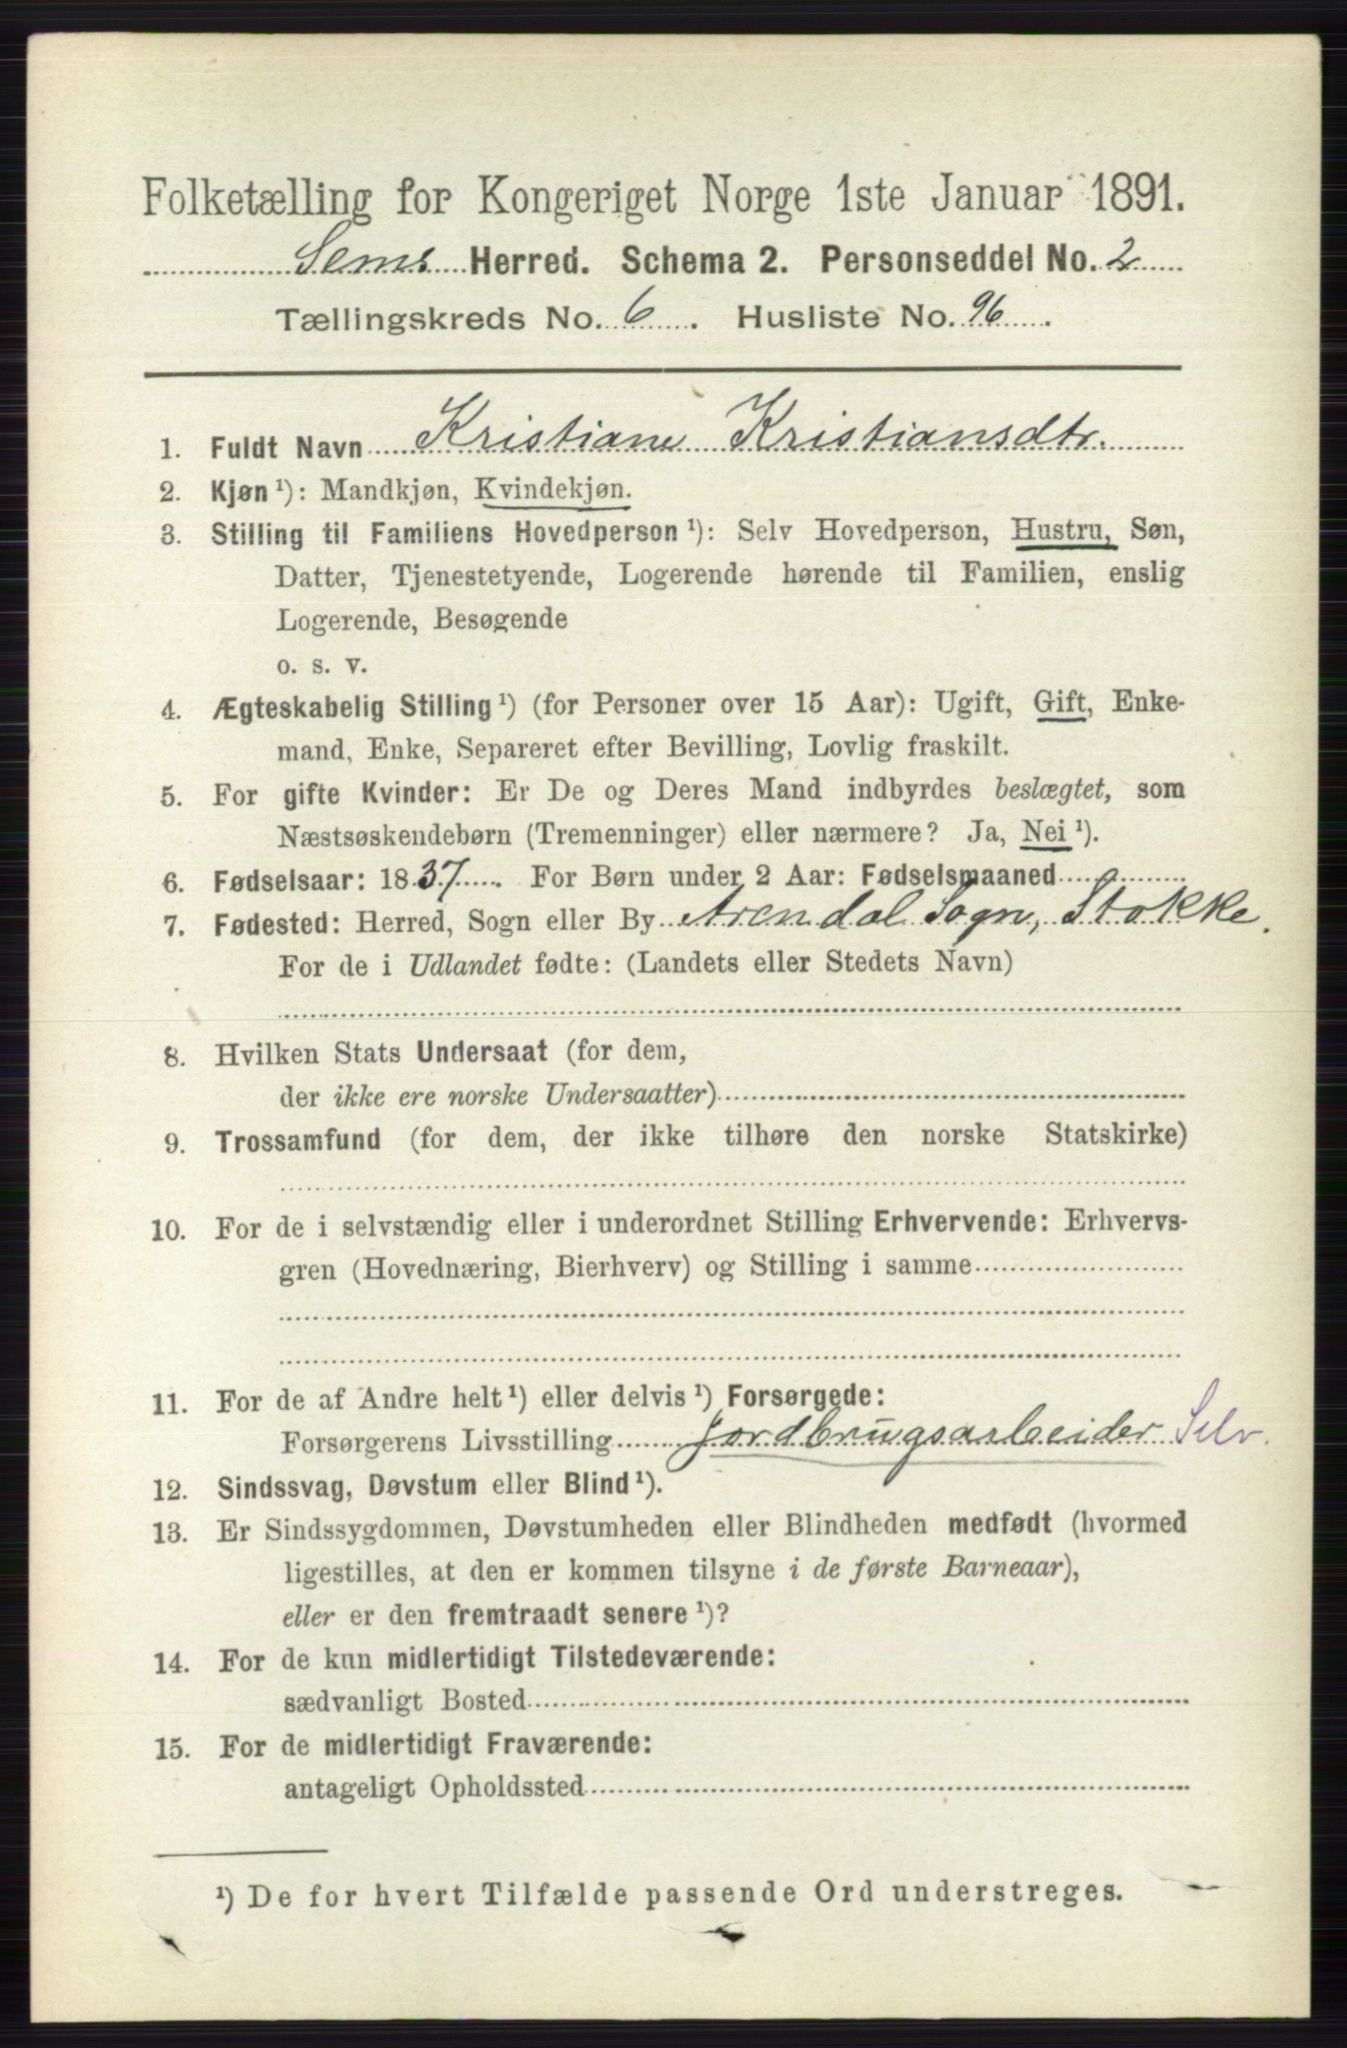 Folketælling for Kongeriget Norge 1ste Januar 1891.
Sems Herred. Schema 2. Personseddel No. 2
Tællingskreds No. 6. Husliste No. 96.
1. Fuldt Navn Kristiane Kristiansdtr.
2. Kjøn ¹): Mandkjøn, Kvindekjøn.
3. Stilling til Familiens Hovedperson ¹): Selv Hovedperson, Hustru, Søn,
Datter, Tjenestetyende, Logerende hørende til Familien, enslig
Logerende, Besøgende
o. s. v.
4. Ægteskabelig Stilling ¹) (for Personer over 15 Aar): Ugift, Gift, Enke-
mand, Enke, Separeret efter Bevilling, Lovlig fraskilt.
5. For gifte Kvinder: Er De og Deres Mand indbyrdes beslægtet, som
Næstsøskendebørn (Tremenninger) eller nærmere? Ja, Nei ¹).
6. Fødselsaar: 1837. For Børn under 2 Aar: Fødselsmaaned
7. Fødested: Herred, Sogn eller By Arendal Sogn, Stokke.
For de i Udlandet fødte: (Landets eller Stedets Navn)
8. Hvilken Stats Undersaat (for dem,
der ikke ere norske Undersaatter)
9. Trossamfund (for dem, der ikke tilhøre den norske Statskirke)
10. For de i selvstændig eller i underordnet Stilling Erhvervende: Erhvervs-
gren (Hovednæring, Bierhverv) og Stilling i samme
11. For de af Andre helt ¹) eller delvis ¹) Forsørgede:
Forsørgerens Livsstilling Jordbrugsarbeider Selv.
12. Sindssvag, Døvstum eller Blind ¹).
13. Er Sindssygdommen, Døvstumheden eller Blindheden medfødt (hvormed
ligestilles, at den er kommen tilsyne i de første Barneaar),
eller er den fremtraadt senere ¹)?
14. For de kun midlertidigt Tilstedeværende:
sædvanligt Bosted
15. For de midlertidigt Fraværende:
antageligt Opholdssted
¹) De for hvert Tilfælde passende Ord understreges.